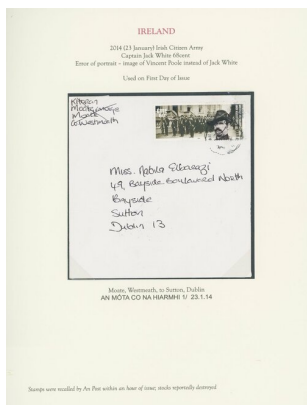 IRELAND
2014 (23 January) Irish Citizen Army
Captain Jack White 68cent
Error of portrait - image of Vincent Poole instead of Jack White
Used on First Day of Issue
Moate
Co Westmeath
Mrs. Nabila Elbarazi
49, Bayside Boulevard North
Bayside
Sutton
Dublin 13
Moate, Westmeath, to Sutton, Dublin
AN MÓTA CO NA HIARMHI 1/ 23.1.14
Stamps were recalled by An Post within an hour of issue; stocks reportedly destroyed